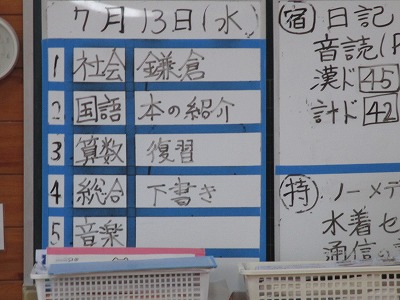 7月13日(水)
1 社会 鎌倉
2 国語 本の紹介
3 算数 復習
4 総合 下書き
5 音楽
宿 日記
音読(
漢ド 45
計ド 42
持 ノーメデ
水着セ
通信